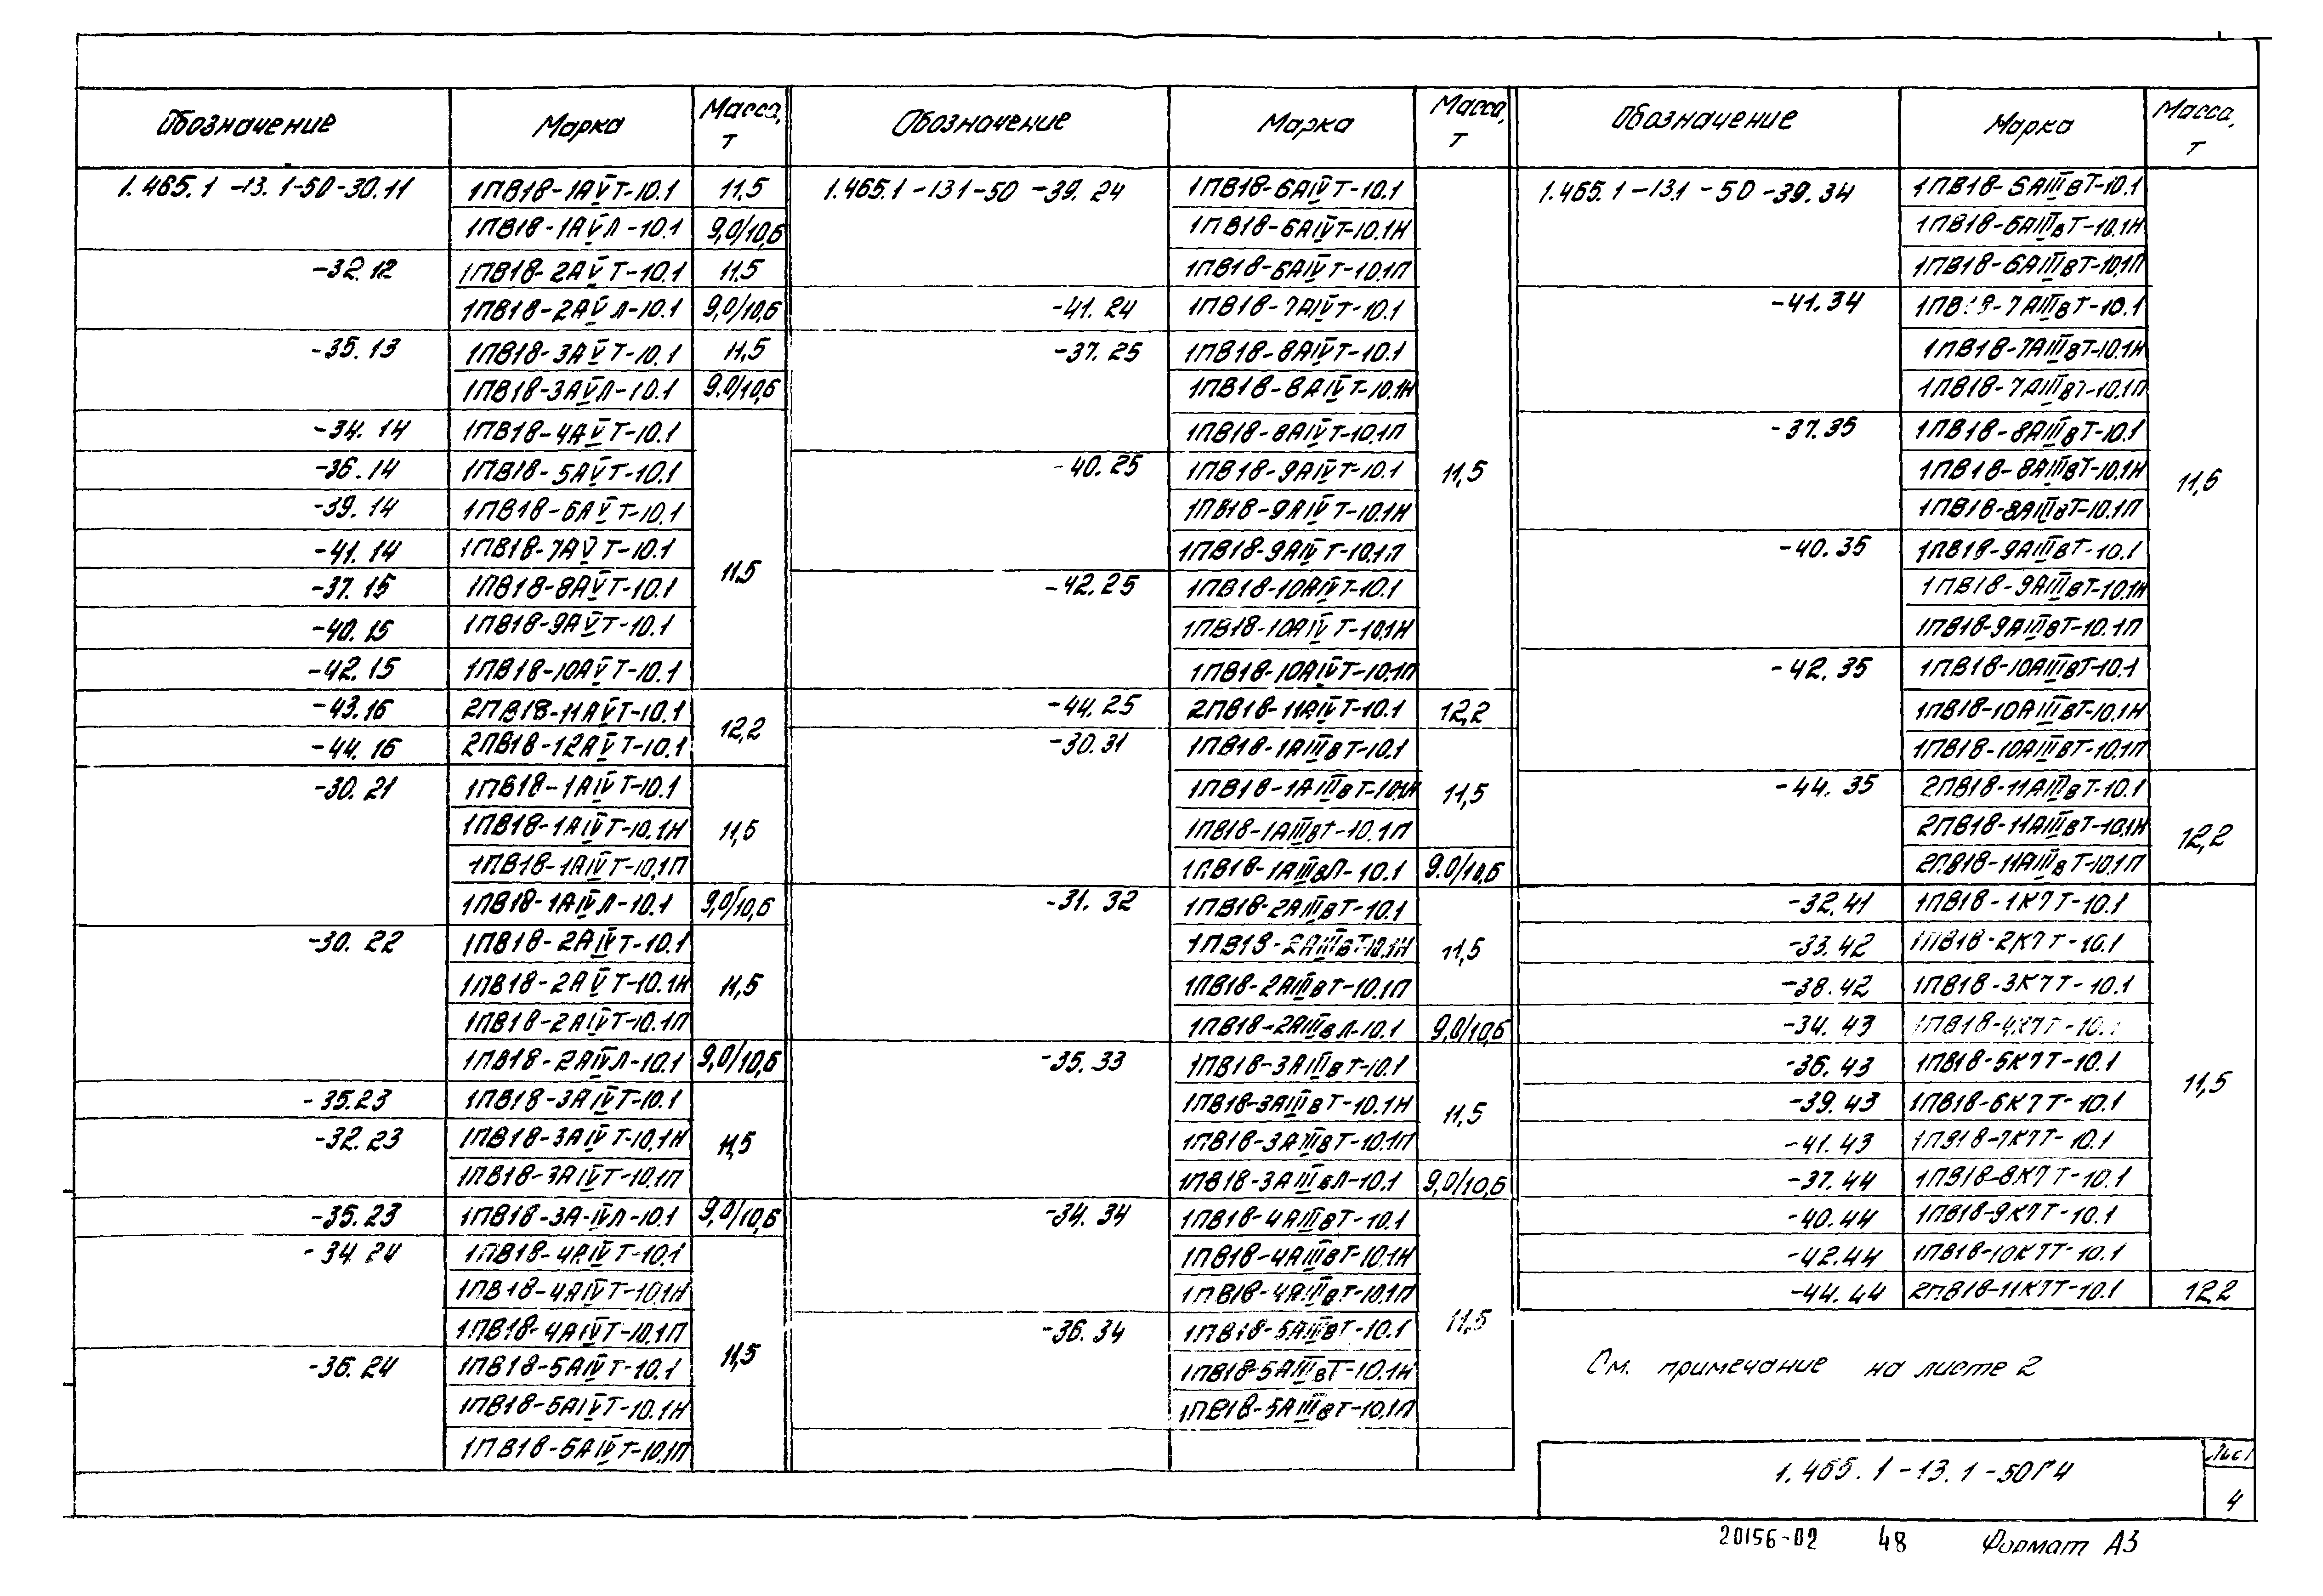 Обозначение | Марка | Масса, т
1.465.1-13.1-50-30.11 | 1ПВ18-1АVТ-10.1 | 11,5
1ПВ18-1АVЛ-10.1 | 9,0/10,6
-32.12 | 1ПВ18-2АVТ-10.1 | 11.5
1ПВ18-2АVЛ-10.1 | 9,0/10,6
-35.13 | 1ПВ18-3АVТ-10.1 | 11,5
1ПВ18-3АVЛ-10.1 | 9.0/10,6
-34.14 | 1ПВ18-4АVТ-10.1
-36.14 | 1ПВ18-5АVТ-10.1
-39.14 | 1ПВ18-6АVТ-10.1
-41.14 | 1ПВ18-7АVТ-10.1 | 11.5
-37.15 | 1ПВ18-8АVТ-10.1
-40.15 | 1ПВ18-9АVТ-10.1
-42.15 | 1ПВ18-10АVТ-10.1
-43.16 | 2ПВ18-11АVТ-10.1 | 12,2
-44.16 | 2ПВ18-12АVТ-10.1
-30.21 | 1ПВ18-1АIVТ-10.1
1ПВ18-1АIVТ-10.1Н | 11,5
1ПВ18-1АIVТ-10,1П
1ПВ18-1АIVЛ-10.1 | 9,0/10,6
-30.22 | 1ПВ18-2АIVТ-10.1
1ПВ18-2АVТ-10.1Н | 11,5
1ПВ18-2АIVТ-10.1П
1ПВ18-2АIVЛ-10.1 | 9,0/10,6
-35.23 | 1ПВ18-3АIVТ-10.1
-32.23 | 1ПВ18-3АIVТ-10,1Н | 11,5
1ПВ18-3АIVТ-10.1П
-35.23 | 1ПВ18-3А-IVЛ-10.1 | 9,0/10,6
-34.24 | 1ПВ18-4АIVТ-10.1
1ПВ18-4АIVТ-10.1Н
1ПВ18-4АIVТ-10.1П | 11,5
-36.24 | 1ПВ18-5АIVТ-10.1
1ПВ18-5АIVТ-10.1Н
1ПВ18-5АIVТ-10.1П
Обозначение | Марка | Масса, т
1.465.1-131-50-39.24 | 1ПВ18-6АIVТ-10.1
1ПВ18-6АIVТ-10.1Н
1ПВ18-6АIVТ-10.1П
-41.24 | 1ПВ18-7АIVТ-10.1
-37.25 | 1ПВ18-8АIVТ-10.1
1ПВ18-8АIVТ-10.1Н
1ПВ18-8АIVТ-10.1П
-40.25 | 1ПВ18-9АIVТ-10.1 | 11,5
1ПВ18-9АIVТ-10.1Н
1ПВ18-9АIVТ-10.1П
-42.25 | 1ПВ18-10АIVТ-10.1
1ПВ18-10АIVТ-10.1Н
1ПВ18-10АIVТ-10.1П
-44.25 | 2ПВ18-11АIVТ-10.1 | 12,2
-30.31 | 1ПВ18-1АIIIвТ-10.1
1ПВ18-1АIIIвТ-10.1Н | 11,5
1ПВ18-1АIIIвТ-10.1П
1ПВ18-1АIIIвЛ-10.1 | 9.0/10,6
-31.32 | 1ПВ18-2АIIIвТ-10.1
1ПВ18-2АIIIвТ-10.1Н | 11,5
1ПВ18-2АIIIвТ-10.1П
1ПВ18-2АIIIвЛ-10.1 | 9,0/10,6
-35.33 | 1ПВ18-3АIIIвТ-10.1
1ПВ18-3АIIIвТ-10.1Н | 11,5
1ПВ18-3АIIIвТ-10.1П
1ПВ18-3АIIIвЛ-10.1 | 9,0/10,6
-34.34 | 1ПВ18-4АIIIвТ-10.1
1ПВ18-4АIIIвТ-10.1Н
1ПВ18-4АIIIвТ-10.1П | 11,5
-36.34 | 1ПВ18-5АIIIвТ-10.1
1ПВ18-5АIIIвТ-10.1Н
1ПВ18-5АIIIвТ-10.1П
Обозначение | Марка | Масса, т
1.465.1-13.1-50-39.34 | 1ПВ18-6АIIIвТ-10.1
1ПВ18-6АIIIвТ-10.1Н
1ПВ18-6АIIIвТ-10,1П
-41.34 | 1ПВ18-7АIIIвТ-10.1
1ПВ18-7АIIIвТ-10.1Н
1ПВ18-7АIIIвТ-10.1П
-37.35 | 1ПВ18-8АIIIвТ-10.1
1ПВ18-8АIIIвТ-10.1Н | 11,5
1ПВ18-8АIIIвТ-10.1П
-40.35 | 1ПВ18-9АIIIвТ-10.1
1ПВ18-9АIIIвТ-10.1Н
1ПВ18-9АIIIвТ-10.1П
-42.35 | 1ПВ18-10АIIIвТ-10.1
1ПВ18-10АIIIвТ-10.1Н
1ПВ18-10АIIIвТ-10.1П
-44.35 | 2ПВ18-11АIIIвТ-10.1
2ПВ18-11АIIIвТ-10.1Н | 12,2
2ПВ18-11АIIIвТ-10.1П
-32.41 | 1ПВ18-1К7Т-10.1
-33.42 | 1ПВ18-2К7Т-10.1
-38.42 | 1ПВ18-3К7Т-10.1
-34.43 | 1ПВ18-4К7Т-10.1
-36.43 | 1ПВ18-5К7Т-10.1 | 11,5
-39.43 | 1ПВ18-6К7Т-10.1
-41.43 | 1ПВ18-7К7Т-10.1
-37.44 | 1ПВ18-8К7Т-10.1
-40.44 | 1ПВ18-9К7Т-10.1
-42.44 | 1ПВ18-10К7Т-10.1
-44.44 | 2ПВ18-11К7Т-10.1 | 12,2
См. примечание на листе 2
1.465.1-13.1-50ГЧ
Лист
4
20156-02 48 Формат А3